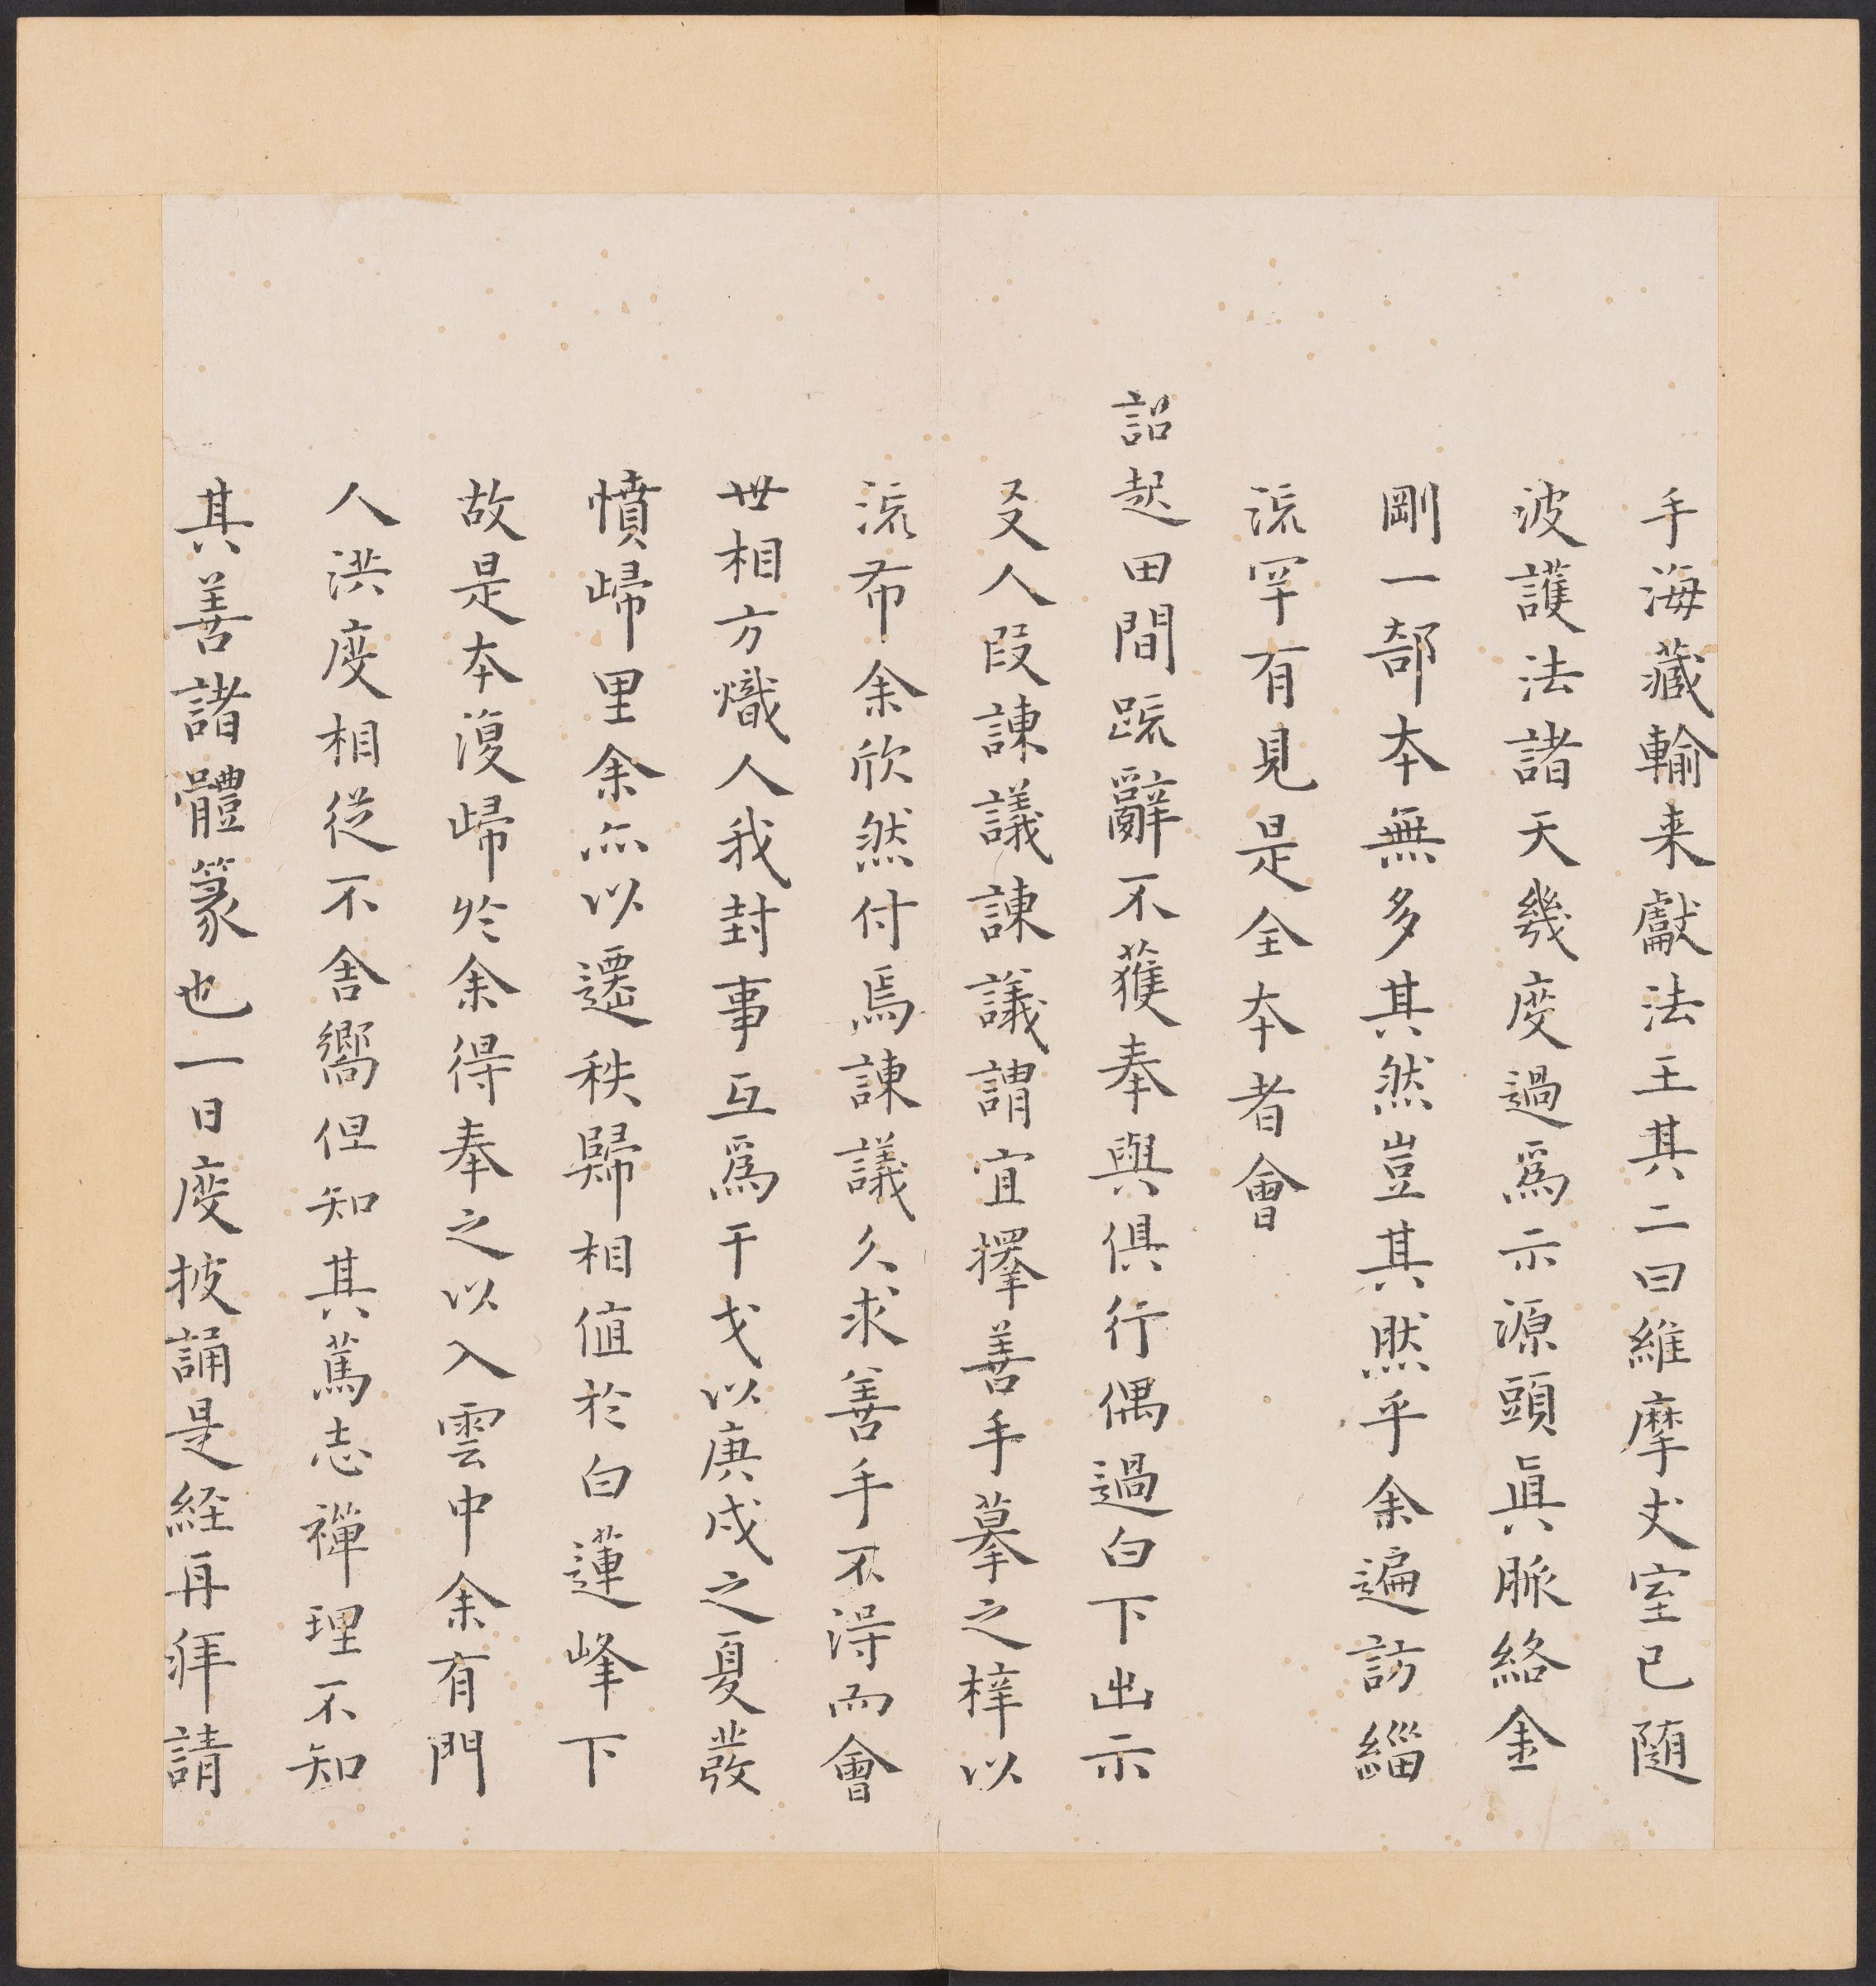 手海藏輸来獻法王其二曰維摩丈室已随
波護法諸天幾度過爲示源頭眞脈絡金
剛一部本無多其然豈其然乎余遍訪緇
流罕有見是全本者會
詔起田間疏辭不獲奉與俱行偶過白下出示
友人段諫議諫議謂宜擇善手摹之梓以
流布余欣然付焉諫議久求善手不得而會
世相方熾人我封事互爲干戈以庚戌之夏發
憤歸里余亦以遷秩歸相值於白蓮峰下
故是本復歸於余得奉之以入雲中余有門
人洪度相從不舍嚮但知其篤志禪理不知
其善諸體篆也一日度披誦是経再拜請